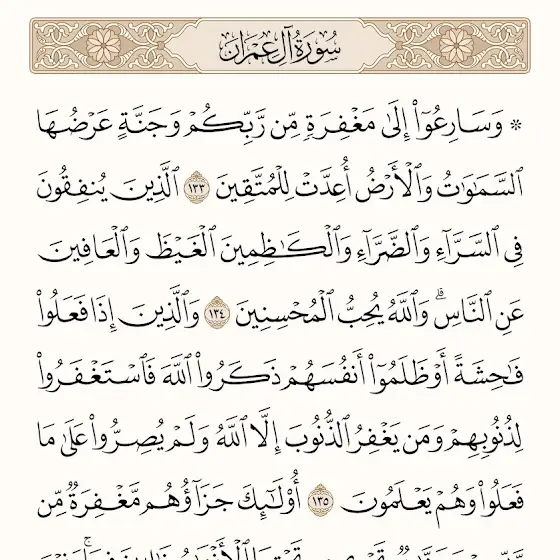 سُورَةُ آلِ عِمۡرَانَ
۞ وَسَارِعُوٓاْ إِلَىٰ مَغۡفِرَةٖ مِّن رَّبِّكُمۡ وَجَنَّةٍ عَرۡضُهَا
ٱلسَّمَٰوَٰتُ وَٱلۡأَرۡضُ أُعِدَّتۡ لِلۡمُتَّقِينَ ١٣٣ ٱلَّذِينَ يُنفِقُونَ
فِي ٱلسَّرَّآءِ وَٱلضَّرَّآءِ وَٱلۡكَٰظِمِينَ ٱلۡغَيۡظَ وَٱلۡعَافِينَ
عَنِ ٱلنَّاسِۗ وَٱللَّهُ يُحِبُّ ٱلۡمُحۡسِنِينَ ١٣٤ وَٱلَّذِينَ إِذَا فَعَلُواْ
فَٰحِشَةً أَوۡ ظَلَمُوٓاْ أَنفُسَهُمۡ ذَكَرُواْ ٱللَّهَ فَٱسۡتَغۡفَرُواْ
لِذُنُوبِهِمۡ وَمَن يَغۡفِرُ ٱلذُّنُوبَ إِلَّا ٱللَّهُ وَلَمۡ يُصِرُّواْ عَلَىٰ مَا
فَعَلُواْ وَهُمۡ يَعۡلَمُونَ ١٣٥ أُوْلَٰٓئِكَ جَزَآؤُهُم مَّغۡفِرَةٞ مِّن